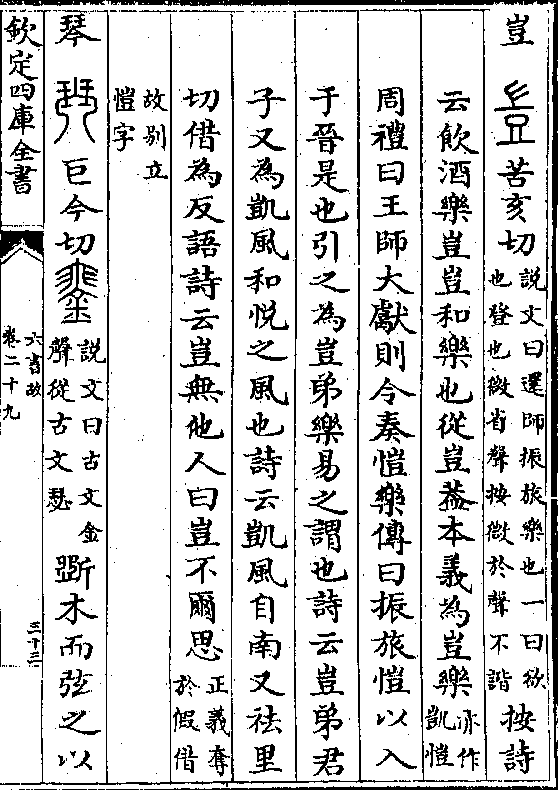 豈 苦亥切說文曰還師振旅樂也一曰欲也登也微省聲按微於聲不諧按詩
云飲酒樂豈豈和樂也從豈葢本義為豈樂亦作凱愷
周禮曰王師大獻則令奏愷樂傳曰振旅愷以入
于晉是也引之為豈弟樂易之謂也詩云豈弟君
子又為凱風和悅之風也詩云凱風自南又祛里
切借為反語詩云豈無他人曰豈不爾思正義奪於假借
故别立愷字
琴 巨今切 說文曰古文金聲從古文瑟 斲木而弦之以
欽定四庫全書
六書故
卷二十九
三十三